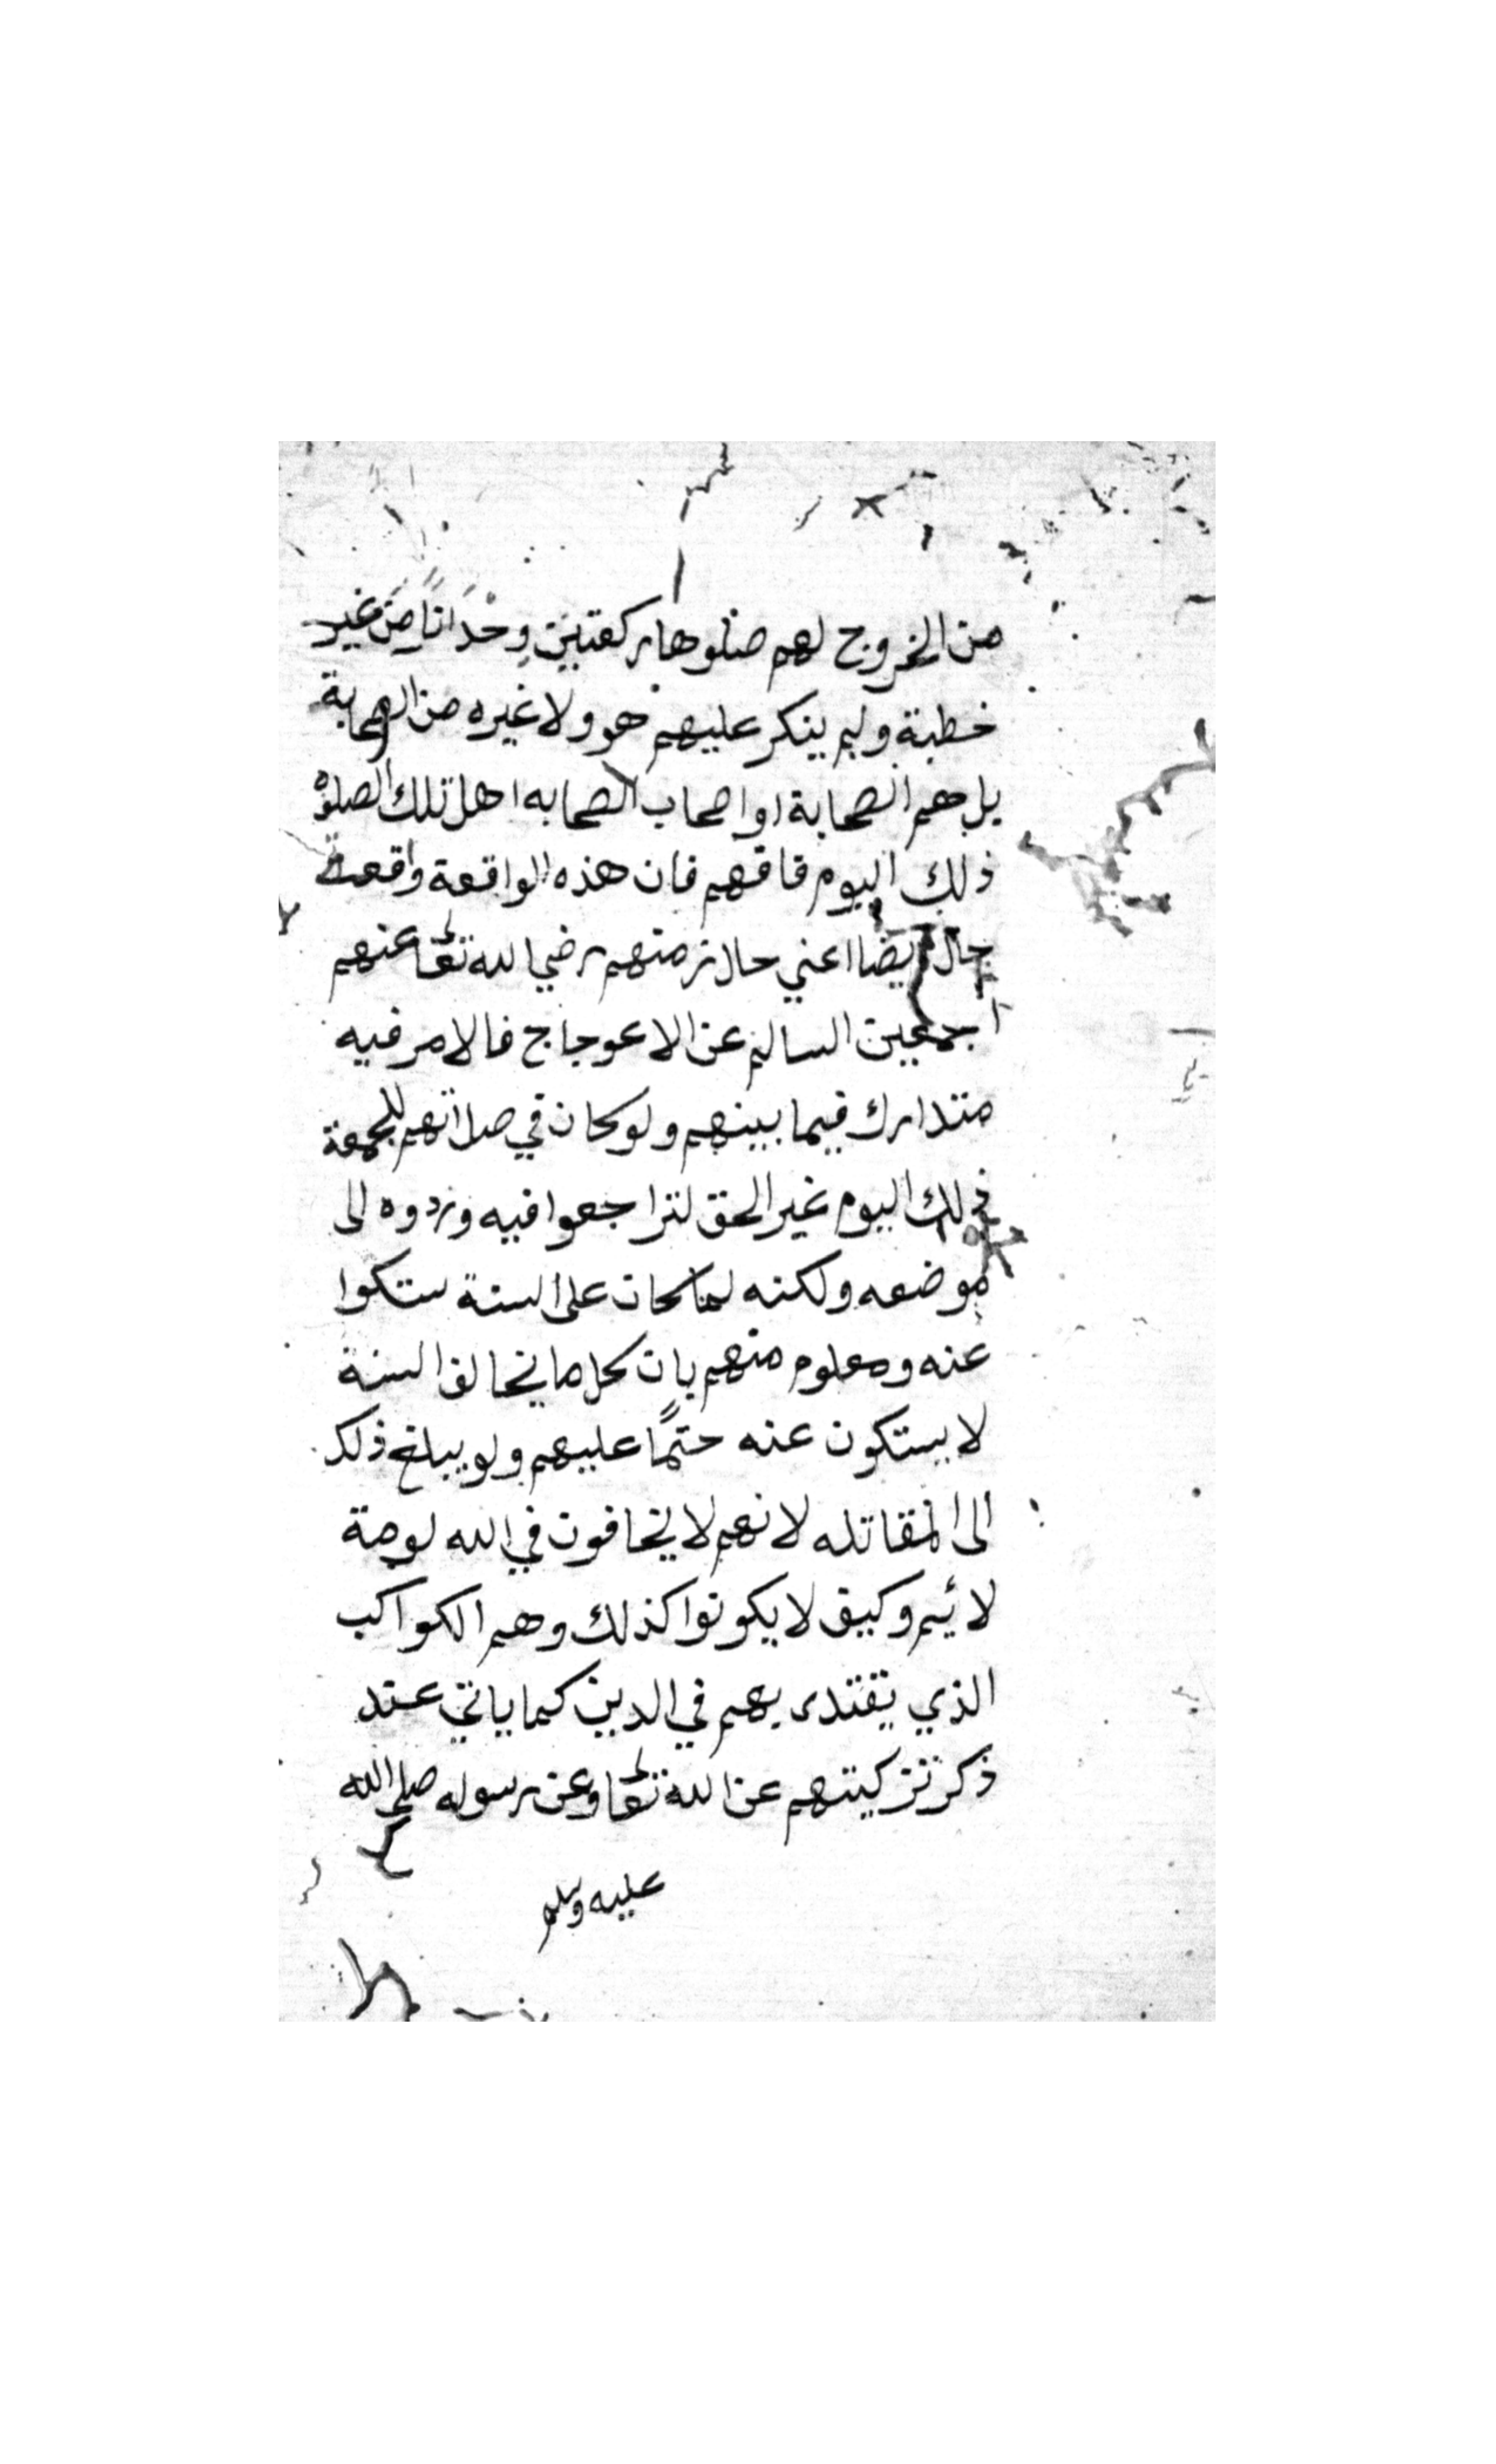 من الخروج لهم صلوها ركعتين وِحْدَانًا مِن غير
خطبة ولم ينكر عليهم هو ولا غيره من الصحابة
بل هم الصحابة او اصحاب الصحابه اهل تلك الصلوة
ذلك اليوم فافهم فان هذه الواقعة واقعة
حال ايضا اعني حال زمنهم رضي الله تعالى عنهم
اجمعين السالم عن الاعوجاج فالامر فيه
متدارك فيما بينهم ولو كان في صلاتهم للجمعة
ذلك اليوم غير الحق لتراجعوا فيه وردوه الى
موضعه ولكنه لما كان على السنة ستكوا
عنه ومعلوم منهم بان كل ما يخالف السنة
لا يستكون عنه حتمًا عليهم ولو يبلغ ذلك
الى المقاتله لانهم لا يخافون في الله لومة
لائم وكيف لا يكونوا كذلك وهم الكواكب
الذي يقتدى بهم في الدين كما ياتي عند
ذكر تزكيتهم عن الله تعالى وعن رسوله صلى الله
عليه وسلم